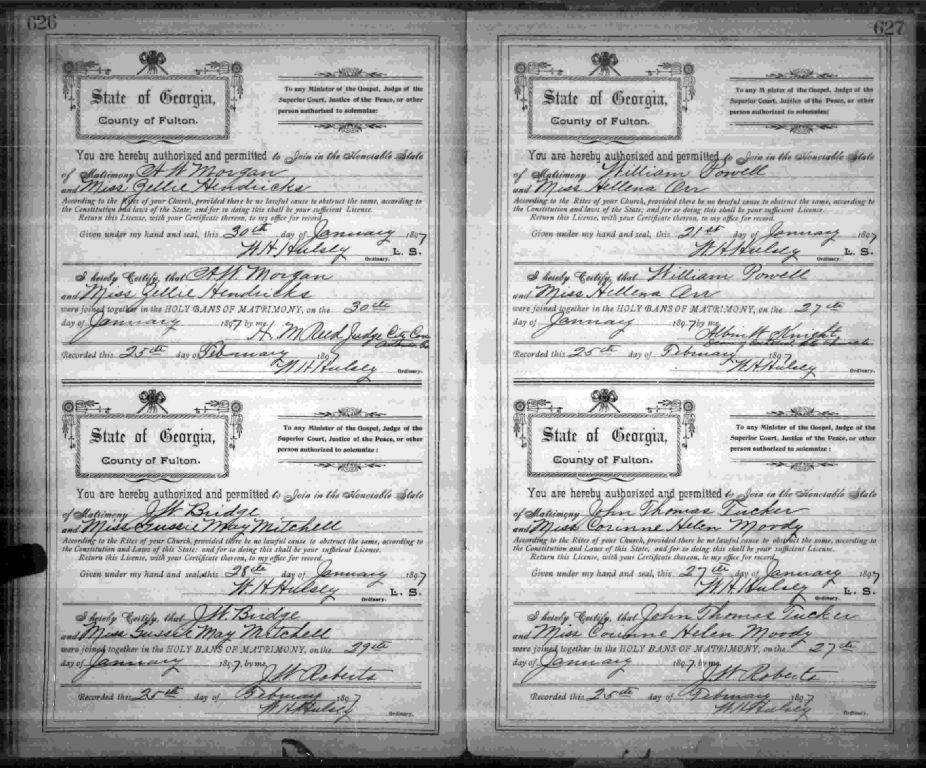 626
State of Georgia,
County of Fulton.
To any Minister of the Gospel, Judge of the
Superior Court, Justice of the Peace, or other
person authorized to solemnize:
You are hereby authorized and permitted to Join in the Honorable State
of Matrimony A W Morgan
and Miss Gellie Hendricks
According to the Rites of your Church, provided there be no lawful cause to obstruct the same, according to
the Constitution and laws of the State; and for so doing this shall be your sufficient License.
Return this License, with your Certificate thereon, to my office for record.
Given under my hand and seal, this 30th day of January 1897
W. H. Hulsey L. S.
Ordinary.
I hereby Certify, that A. W. Morgan
and Miss Gellie Hendricks
were joined together in the HOLY BANS OF MATRIMONY, on the 30th
day of January 1897 by me,
H. M. Reid Judge City Cou
Recorded this 25th day of February 1897
W H Hulsey
Ordinary.
State of Georgia,
County of Fulton.
To any Minister of the Gospel, Judge of the
Superior Court, Justice of the Peace, or other
person authorized to solemnize:
You are hereby authorized and permitted to Join in the Honorable State
of Matrimony J. W. Bridge
and Miss Gussie May Mitchell
According to the Rites of your Church, provided there be no lawful cause to obstruct the same, according to
the Constitution and Laws of this State; and for so doing this shall be your sufficient License.
Return this License, with your Certificate thereon, to my office for record.
Given under my hand and seal, this 28th day of January 1897
W. H. Hulsey L. S.
Ordinary.
I hereby Certify, that J. W. Bridge
and Miss Gussie May Mitchell
were joined together in the HOLY BANS OF MATRIMONY, on the 29th
day of January 1897, by me,
J. W. Roberts
Recorded this 25th day of February 1897
W. H. Hulsey
Ordinary.
627
State of Georgia,
County of Fulton.
To any Minister of the Gospel, Judge of the
Superior Court, Justice of the Peace, or other
person authorized to solemnize:
You are hereby authorized and permitted to Join in the Honorable State
of Matrimony William Powell
and Miss Hellena Orr
According to the Rites of your Church, provided there be no lawful cause to obstruct the same, according to
the Constitution and laws of the State; and for so doing this shall be your sufficient License.
Return this License, with your Certificate thereon, to my office for record.
Given under my hand and seal, this 21st day of January 1897
W. H. Hulsey L. S.
Ordinary.
I hereby Certify, that William Powell
and Miss Hellena Orr
were joined together in the HOLY BANS OF MATRIMONY, on the 27th
day of January 1897 by me,
Albion W. Knight
Recorded this 25th day of February 1897
W. H. Hulsey
Ordinary.
State of Georgia,
County of Fulton.
To any Minister of the Gospel, Judge of the
Superior Court, Justice of the Peace, or other
person authorized to solemnize:
You are hereby authorized and permitted to Join in the Honorable State
of Matrimony John Thomas Tucker
and Miss Corinne Helen Moody
According to the Rites of your Church, provided there be no lawful cause to obstruct the same, according to
the Constitution and Laws of this State; and for so doing this shall be your sufficient License.
Return this License, with your Certificate thereon, to my office for record.
Given under my hand and seal, this 27th day of January 1897
W. H. Hulsey L. S.
Ordinary.
I hereby Certify, that John Thomas Tucker
and Miss Corinne Helen Moody
were joined together in the HOLY BANS OF MATRIMONY, on the 27th
day of January 1897, by me,
J. W. Roberts
Recorded this 25th day of February 1897
W. H. Hulsey
Ordinary.